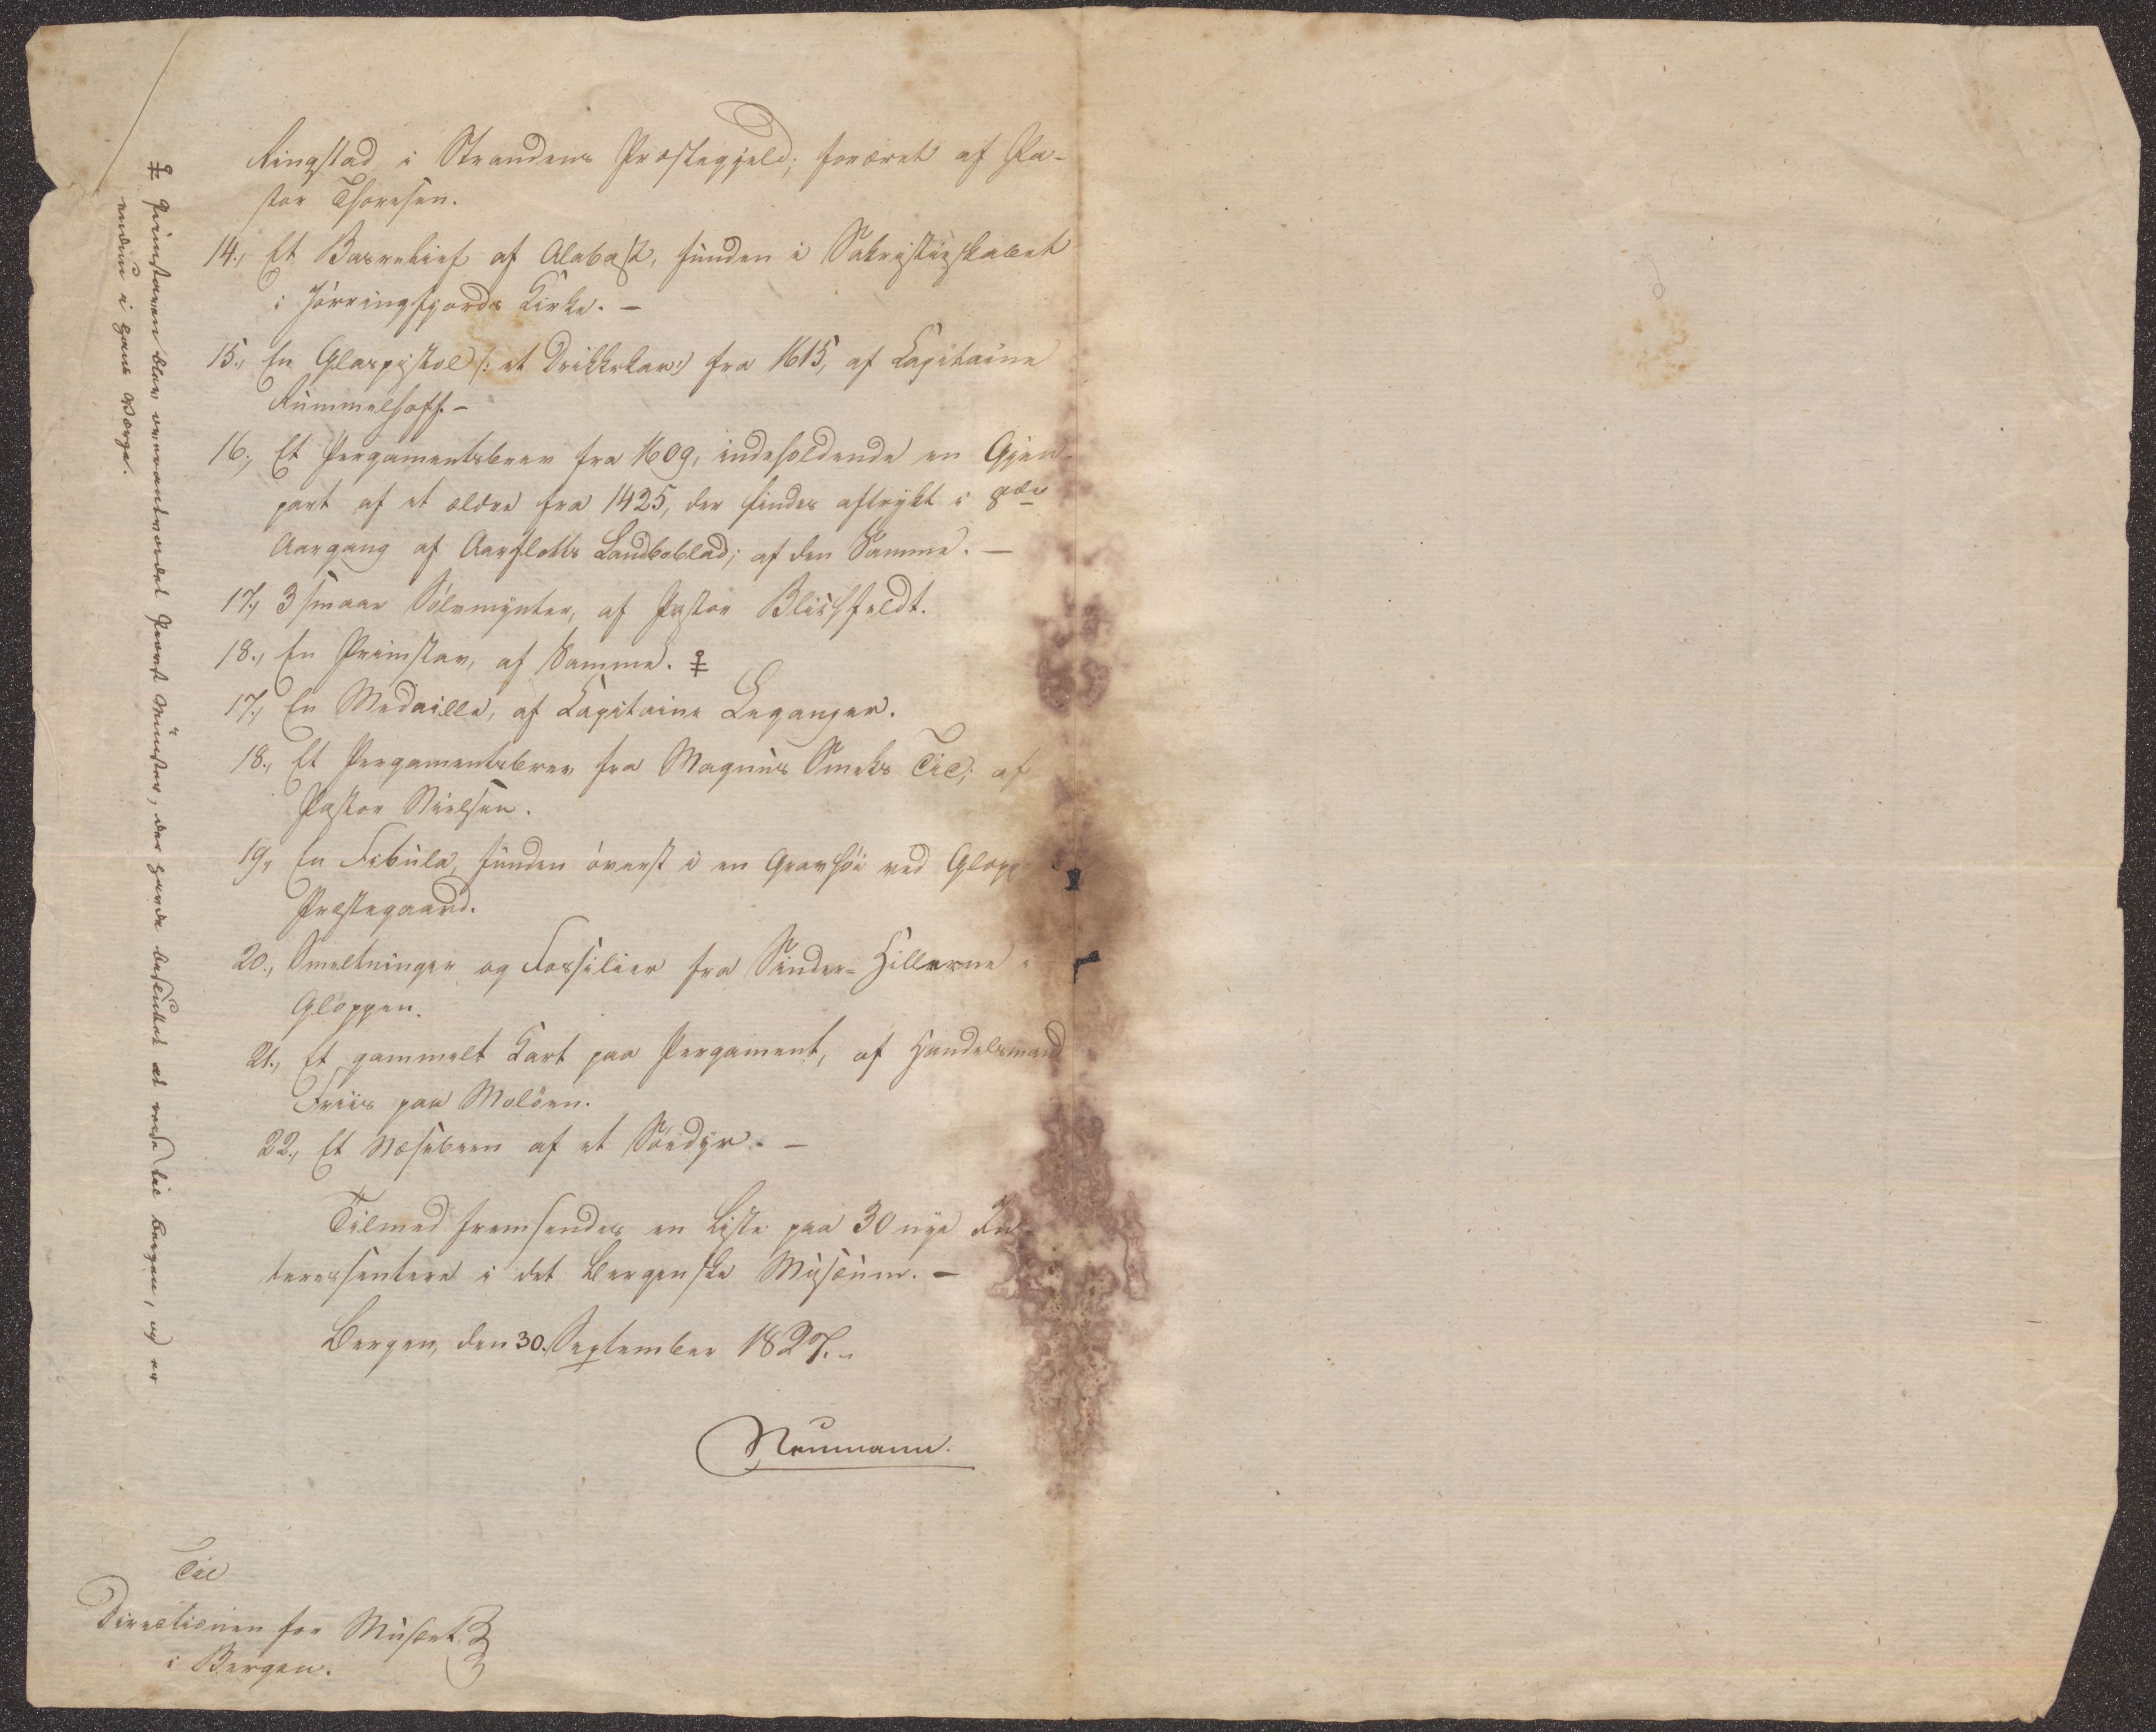 Ringstad i Strandens Præstegjeld; foræret af Pa-
stor Thoresen.
14., Et Basrelief af Alabast, funden i Sakristieskabet
i Jörringfjords Kirke. –
15., En Glaspistol (: et Drikkekar:) fra 1615, af Capitaine
Rummelhoff. –
16., Et Pergamentsbrev fra 1609, indeholdende en Gjen-
part af et ældre fra 1425, der findes aftrykt i 8de
Aargang af Aarflotts Landboblad; af den Samme. –
17., 3 smaae Sölvmynter, af Pastor Blichfeldt.
18., En Primstav, af Samme. ♀
17., En Medaille, af Capitaine Leganger.
18., Et Pergamentsbrev fra Magnus Smeks Tid; af
Pastor Nielsen.
19., En Fibula, funden överst i en Gravhöi ved Glopp
Præstegaard.
20., Smeltninger og Fossilier fra Sinder-Hillerne i
Gloppen.
21., Et gammelt Kart paa Pergament, af Handelsmand
Friis paa Molöen.
22., Et Næsebeen af et Söedyr. –
Tilmed fremsendes en Liste paa 30 nye In-
teressentere i det Bergenske Museum. –
Bergen, den 30. September 1827. –
Neumann.
Til
Directionen for Museet
i Bergen.
♀ Primstaven blev overantvordet Provst Münster, der havde besluttet at reise til Bergen, og er
endnu i hans Værge.